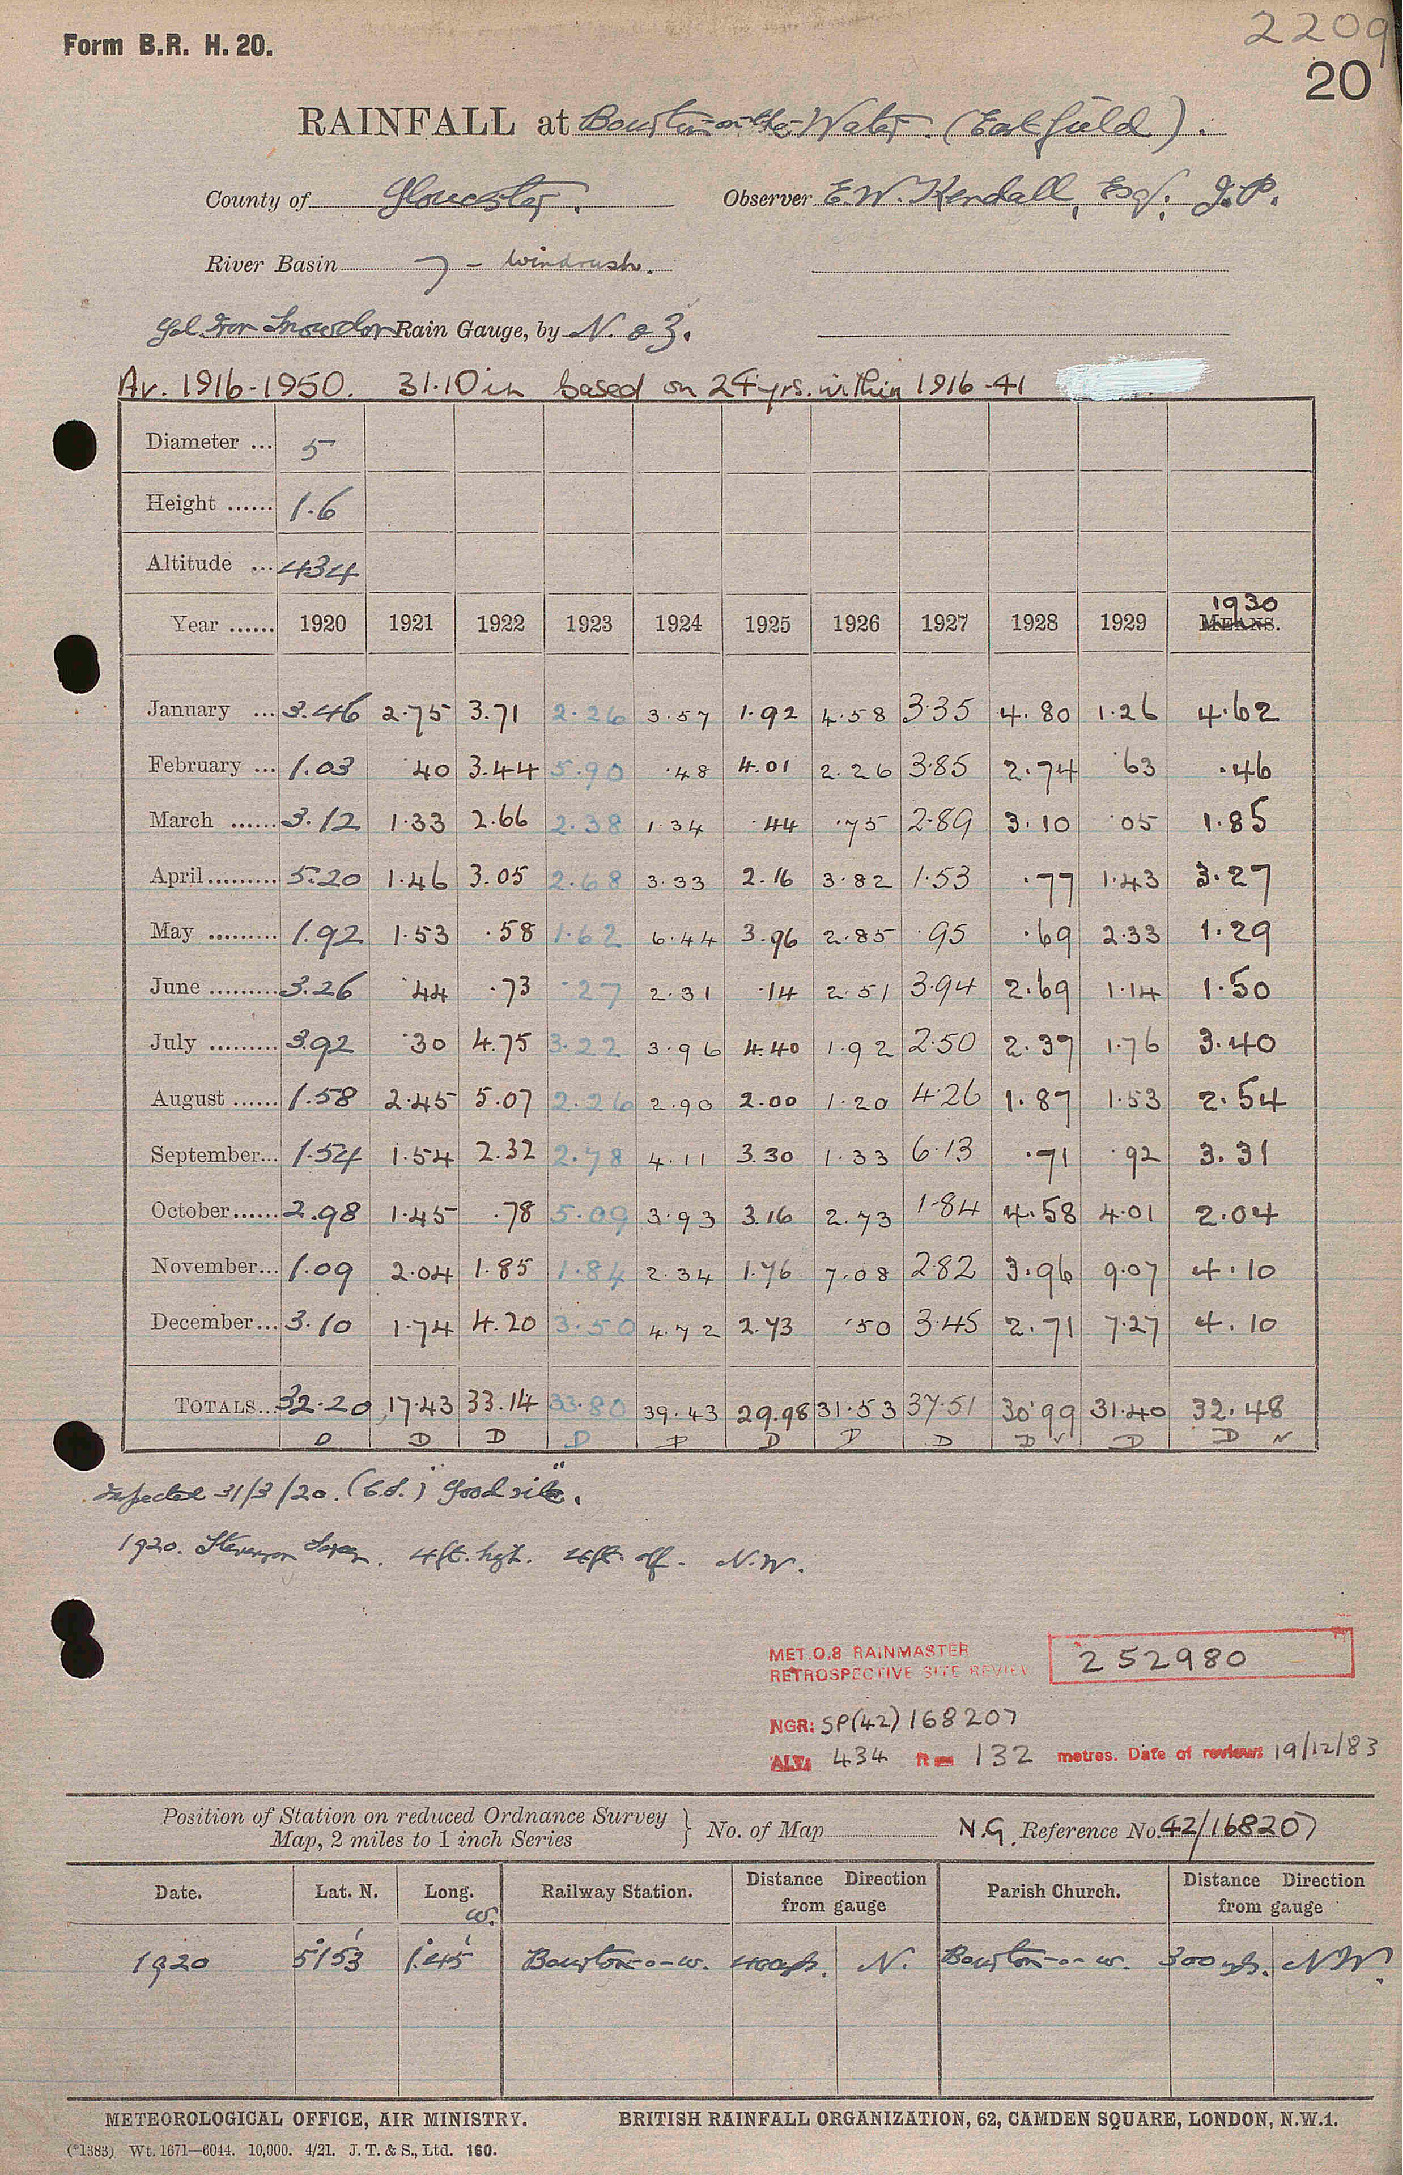 2209
Form B.R. H. 20.
20
RAINFALL at Bourton-on-the-Water. (Eastfield).
County of Gloucester. Observer E. W. Kendall, Esq. J.P.
River Basin 7 - Windrush.
Gal. Iron Snowdon Rain Gauge, by N. & Z.
Av. 1916-1950. 31.10 in based on 24 yrs. within 1916-41
Diameter ... 5
Height ...... 1.6
Altitude ... 434
1930
Year ...... 1920 1921 1922 1923 1924 1925 1926 1927 1928 1929 MEANS.
January ... 3.46 2.75 3.71 2.26 3.57 1.92 4.58 3.35 4.80 1.26 4.62
February ... 1.03 .40 3.44 5.90 .48 4.01 2.26 3.85 2.74 .63 .46
March ...... 3.12 1.33 2.66 2.38 1.34 .44 .75 2.89 3.10 .05 1.85
April ......... 5.20 1.46 3.05 2.68 3.33 2.16 3.82 1.53 .77 1.43 3.27
May ......... 1.92 1.53 .58 1.62 6.44 3.96 2.85 .95 .69 2.33 1.29
June ......... 3.26 .44 .73 .27 2.31 .14 2.51 3.94 2.69 1.14 1.50
July ......... 3.92 .30 4.75 3.22 3.96 4.40 1.92 2.50 2.37 1.76 3.40
August ...... 1.58 2.45 5.07 2.26 2.90 2.00 1.20 4.26 1.87 1.53 2.54
September... 1.54 1.54 2.32 2.78 4.11 3.30 1.33 6.13 .71 .92 3.31
October...... 2.98 1.45 .78 5.09 3.93 3.16 2.73 1.84 4.58 4.01 2.04
November... 1.09 2.04 1.85 1.84 2.34 1.76 7.08 2.82 3.96 9.07 4.10
December... 3.10 1.74 4.20 3.50 4.72 2.73 .50 3.45 2.71 7.27 4.10
TOTALS... 32.20 17.43 33.14 33.80 39.43 29.98 31.53 37.51 30.99 31.40 32.48
D D D D D D D D D D D
Inspected 31/3/20. (C.S.) "Good site".
1920. Stevenson Screen. 4ft. hgt. 4ft. off. N.W.
MET.O.8 RAINMASTER
RETROSPECTIVE SITE REVIEW 252980
NGR: SP(42)168207
ALT: 434 ft = 132 metres. Date of review: 19/12/83
Position of Station on reduced Ordnance Survey
Map, 2 miles to 1 inch Series } No. of Map N.G. Reference No. 42/168207
Date. Lat. N. Long. W. Railway Station. Distance Direction from gauge Parish Church. Distance Direction from gauge
1920 51°53' 1°45' Bourton-o-W. 400yds. N. Bourton-o-W. 300yds. NW.
METEOROLOGICAL OFFICE, AIR MINISTRY. BRITISH RAINFALL ORGANIZATION, 62, CAMDEN SQUARE, LONDON, N.W.1.
(*1383) Wt. 1671—6044. 10,000. 4/21. J. T. & S., Ltd. 160.